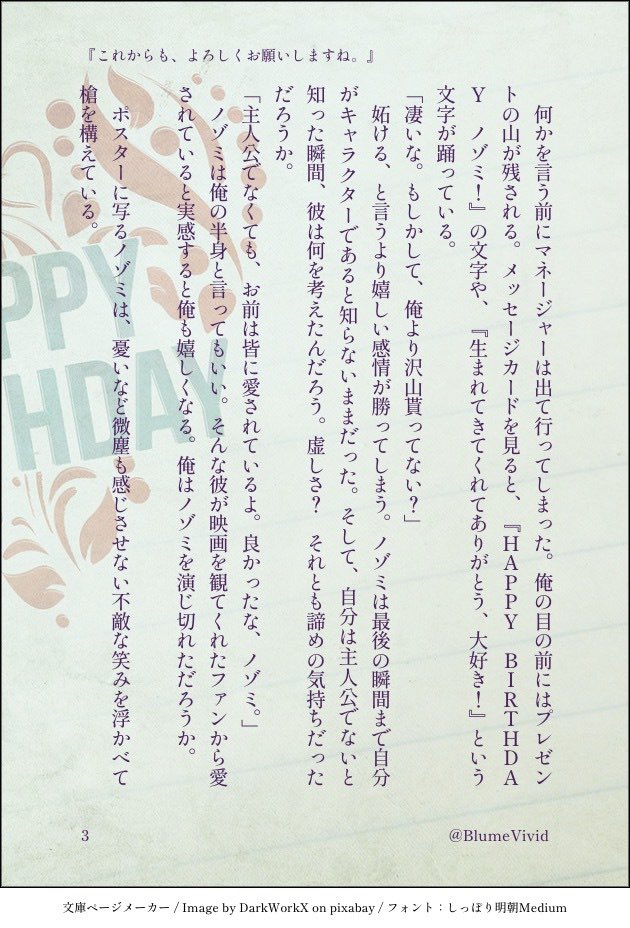 『これからも、よろしくお願いしますね。』
　何かを言う前にマネージャーは出て行ってしまった。俺の目の前にはプレゼン
トの山が残される。メッセージカードを見ると、『HAPPY　BIRTHDA
Y　ノゾミ！』の文字や、『生まれてきてくれてありがとう、大好き！』という
文字が踊っている。
「凄いな。もしかして、俺より沢山貰ってない？」
　妬ける、と言うより嬉しい感情が勝ってしまう。ノゾミは最後の瞬間まで自分
がキャラクターであると知らないままだった。そして、自分は主人公でないと
知った瞬間、彼は何を考えたんだろう。虚しさ？　それとも諦めの気持ちだった
だろうか。
「主人公でなくても、お前は皆に愛されているよ。良かったな、ノゾミ。」
　ノゾミは俺の半身と言ってもいい。そんな彼が映画を観てくれたファンから愛
されていると実感すると俺も嬉しくなる。俺はノゾミを演じ切れただろうか。
　ポスターに写るノゾミは、憂いなど微塵も感じさせない不敵な笑みを浮かべて
槍を構えている。
PPY
HDAY
3
@BlumeVivid
文庫ページメーカー / Image by DarkWorkX on pixabay / フォント：しっぽり明朝Medium